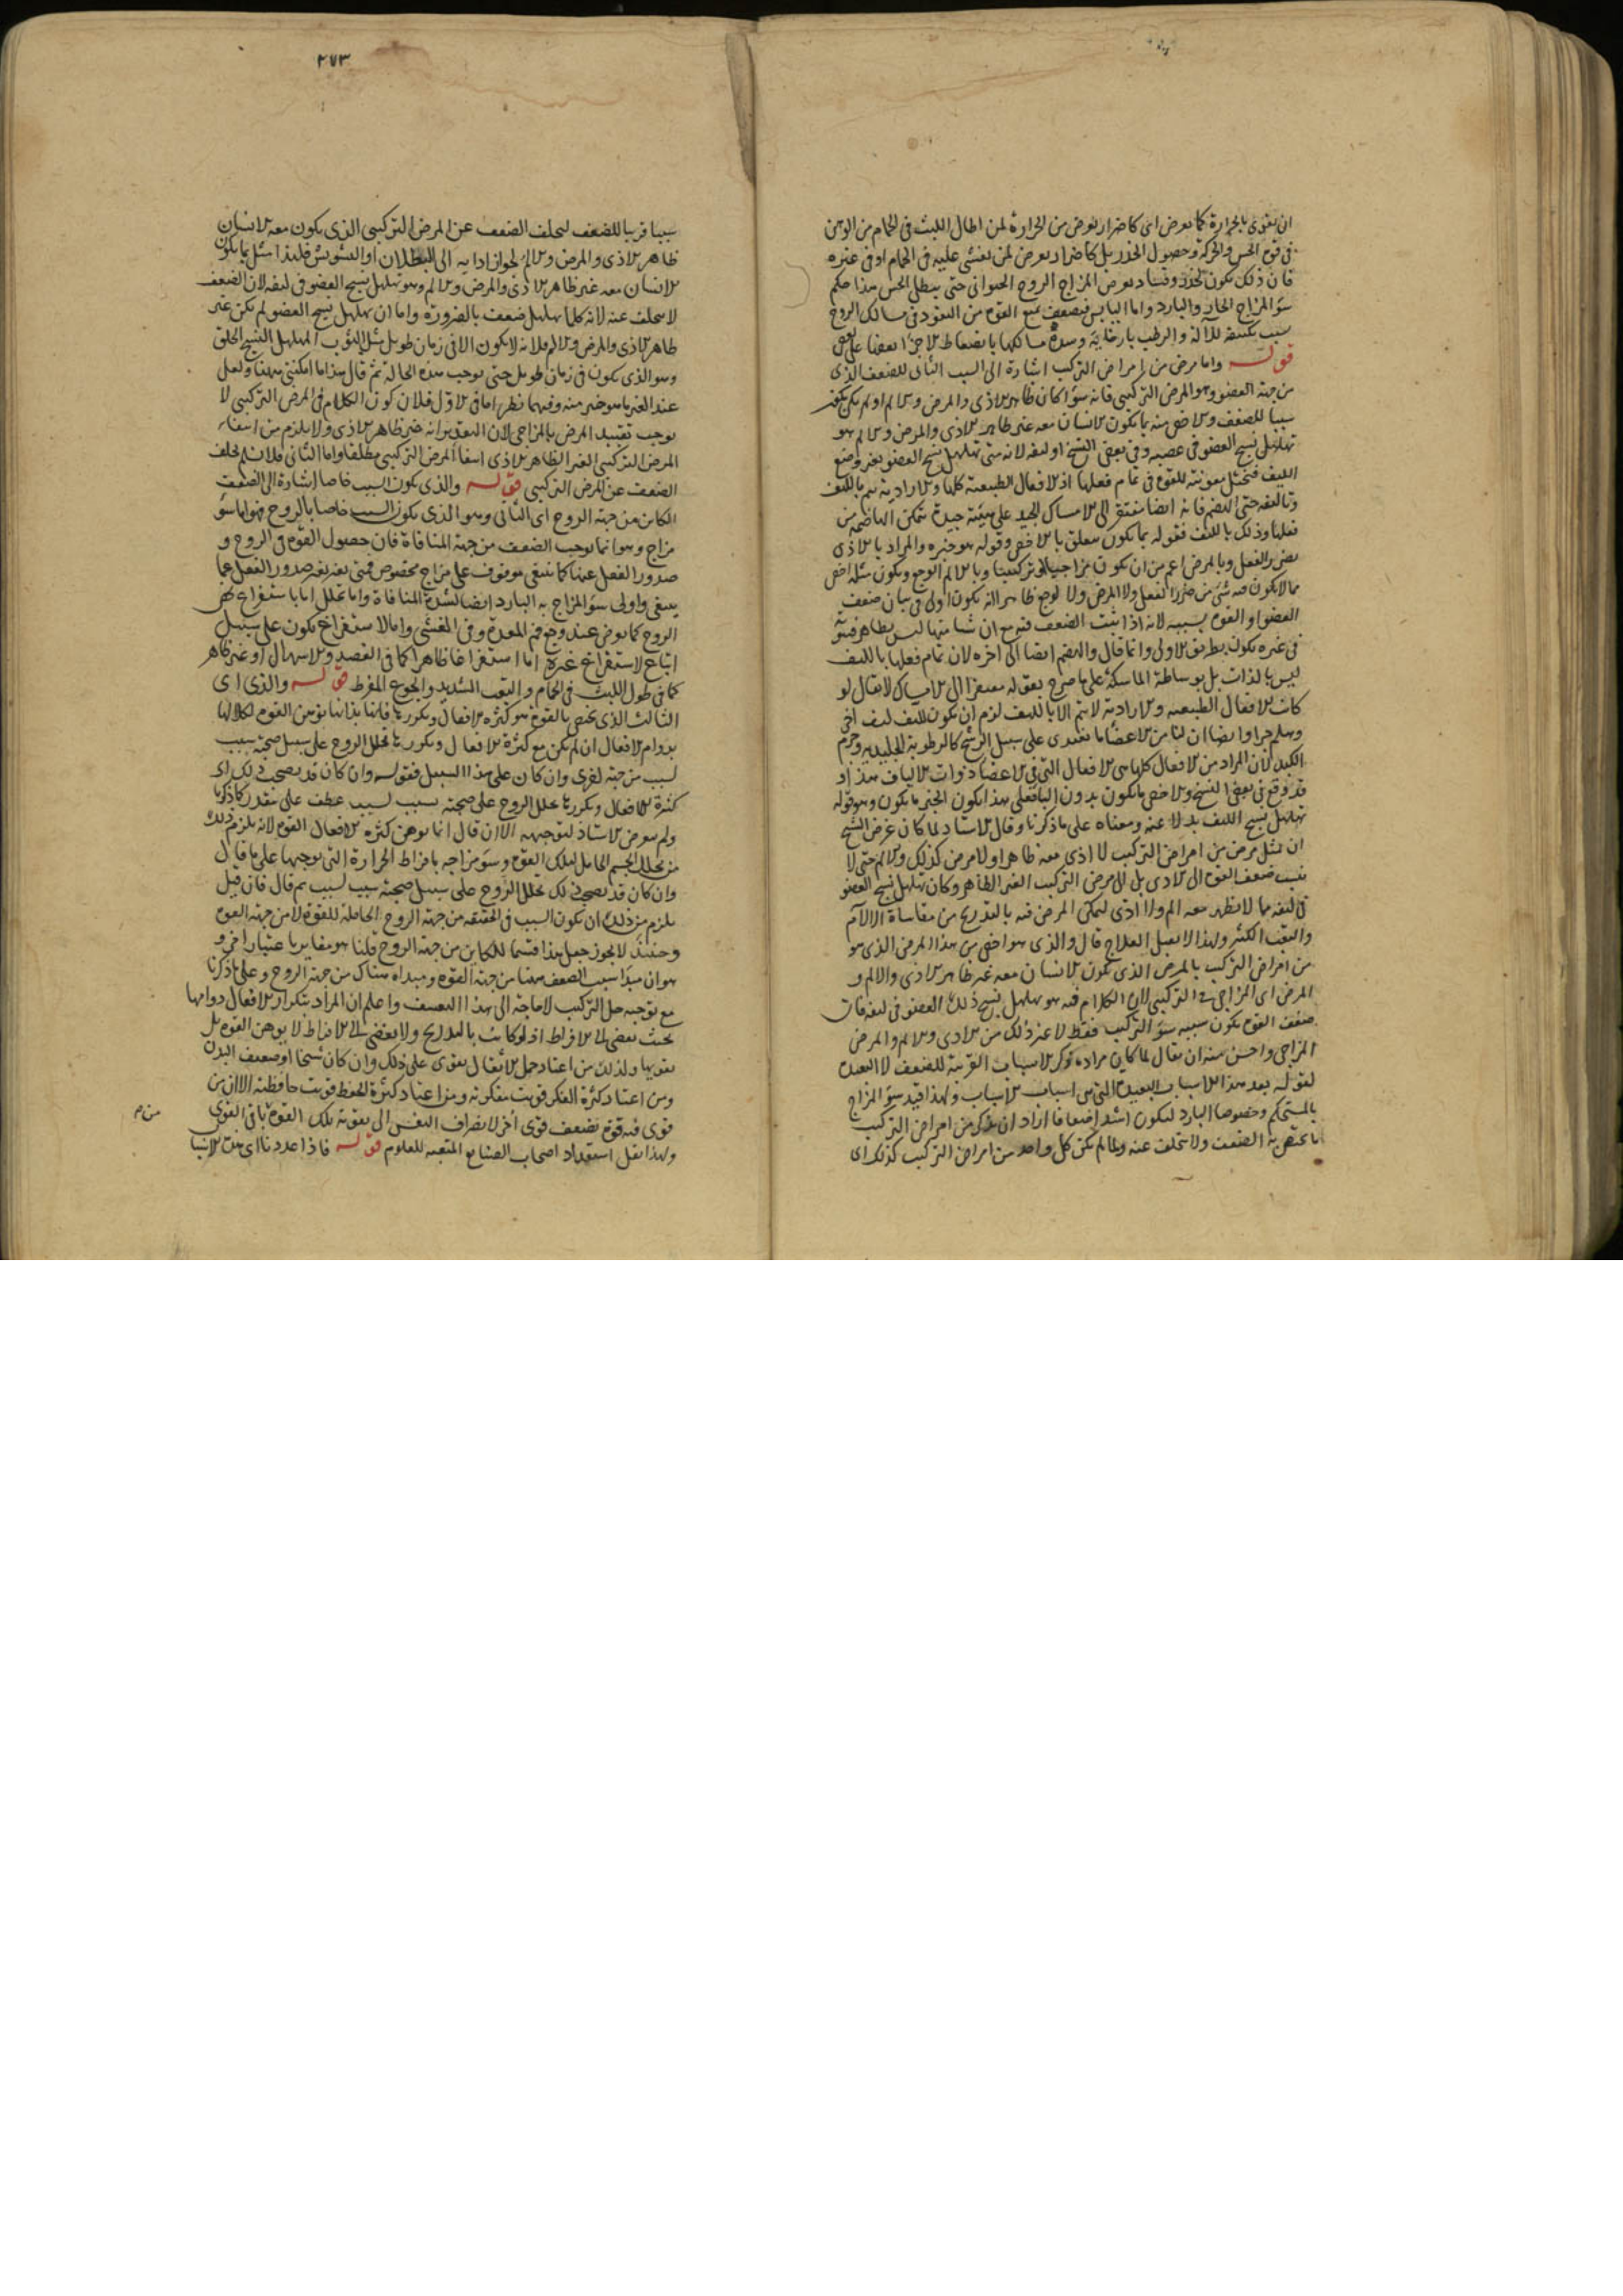 ان يقوى بالحرارة كما يعرض اى كاضرار يعرض من الحرارة لمن اطال اللبث فى الحمام من الوهن
فى قوة الحس والحركة وحصول الخدر بل كاضرار يعرض لمن يغشى عليه فى الحمام او فى غيره
فان ذلك يكون لخدر وفساد يعرض المزاج الروح الحيوانى حتى يبطل الحس هذا حكم
سوء المزاج الحار والبارد واما اليابس فيضعف بمنع القوة من النفوذ فى مسالك الروح
بسبب تكثيفه للآلة والرطب بارخائه وسده مسالكها بانضغاط الاجزاء بعضها على بعض
قوله واما مرض من امراض التركيب اشارة الى السبب الثانى للضعف الذى
من جهة العضو وهو المرض التركيبى فانه سواء كان ظاهر الاذى والمرض والالم او لم يكن يكون
سببا للضعف والاخص منه بما يكون الانسان معه غير ظاهر الاذى والمرض والالم هو
تهلهل نسج العضو فى عصبه وفى بعض النسخ او ليفه لانه متى تهلهل نسج العضو تغير وضع
الليف فتختل معونته للقوة فى تمام فعلها اذ الافعال الطبيعية كلها والارادية يتم بالليف
وتاليفه حتى الهضم فانه ايضا مفتقر الى الامساك الجيد على هيئة جيدة تتمكن الهاضمة من
فعلها وذلك بالليف فقوله بما يكون متعلق بالاخص وقوله هو خبره والمراد بالاذى
ضرر الفعل وبالمرض اعم من ان يكون مزاجيا او تركيبيا وبالالم الوجع ويكون مثله اخص
مما لا يكون فيه شئ من ضرر الفعل ولا المرض ولا الوجع ظاهرا انه يكون اولى فى بيان ضعف
العضو او القوة بسببه لانه اذا ثبت الضعف فيه مع ان شيئا منها ليس بظاهر فثبوته
فى غيره يكون بطريق الاولى وانما قال والهضم ايضا الى اخره لان تمام فعلها بالليف
ليس بالذات بل بوساطة الماسكة على ما صرح بقوله مفتقرا الى الامساك لا يقال لو
كانت الافعال الطبيعية والارادية لا يتم الا بالليف لزم ان يكون لليف ليف اخر
وهلم جرا وايضا ان لنا من الاعضاء ما يغتذى على سبيل الرشح كالرطوبة الجليدية وجرم
الكبد لان المراد من الافعال كلها هى الافعال التى فى الاعضاء ذوات الالياف هذا و
قد وقع فى بعض النسخ والاخص ما يكون بدون الباء فعلى هذا يكون الخبر ما يكون وهو قوله
تهلهل نسج الليف بدلا عنه ومعناه على ما ذكرنا وقال الاستاد لما كان غرض الشيخ
ان يمثل مرض من امراض التركيب لا اذى معه ظاهرا ولا مرض كذلك والالم حتى لا
ينسب ضعف القوة الى الاذى بل الى مرض التركيب الغير الظاهر وكان تهلهل نسج العضو
فى ليفه مما لا يظهر معه الم ولا اذى ليمكن المرض فيه بالتدريج من مقاساة الالام
والتعب الكثير ولهذا لا يقبل العلاج قال والذى هو اخص من هذا المرض الذى هو
من امراض التركيب بالمرض الذى يكون الانسان معه غير ظاهر الاذى والالم و
المرض اى المزاجى لا التركيبى لان الكلام فيه هو تهلهل نسج ذلك العضو فى ليفه فان
ضعف القوة يكون سببه سوء التركيب فقط لا غير ذلك من الاذى والالم والمرض
المزاجى واحسن منه ان يقال لما كان مراده ذكر الاسباب القريبة للضعف لا البعيدة
لقوله بعد هذا الاسباب البعيدة التى هى اسباب الاسباب ولهذا قيد سوء المزاج
بالمستحكم وخصوصا البارد ليكون اشد اضعافا اراد ان يذكر من امراض التركيب
ما يختص به الضعف ولا يتخلف عنه ولما لم يكن كل واحد من امراض التركيب كذلك اى
٢٧٣
سببا قريبا للضعف لتخلف الضعف عن المرض التركيبى الذى يكون معه الانسان
ظاهر الاذى والمرض والالم لجواز ادائه الى البطلان او التشويش فلهذا مثل بما يكون
الانسان معه غير ظاهر الاذى والمرض والالم وهو تهلهل نسج العضو فى ليفه لان الضعف
لا يتخلف عنه لانه كلما تهلهل ضعف بالضرورة واما ان تهلهل نسج العضو لم يكن غير
ظاهر الاذى والمرض والالم فلانه لا يكون الا فى زمان طويل مثل الثوب المهلهل النسج الخلق
وهو الذى يكون فى زمان طويل حتى يوجب هذه الحالة ثم قال هذا ما امكننى ههنا ولعل
عند الغير ما هو خير منه وفيهما نظر اما فى الاول فلان كون الكلام فى المرض التركيبى لا
يوجب تقييد المرض بالمزاجى لان التقدير انه غير ظاهر الاذى ولا يلزم من انتفاء
المرض التركيبى الغير الظاهر الاذى انتفاء المرض التركيبى مطلقا واما الثانى فلا نسلم تخلف
الضعف عن المرض التركيبى قوله والذى يكون السبب خاصا اشارة الى الضعف
الكائن من جهة الروح اى الثانى وهو الذى يكون السبب خاصا بالروح فهو اما سوء
مزاج وهو انما يوجب الضعف من جهة المنافاة فان حصول القوة فى الروح و
صدور الفعل عنها كما ينبغى موقوف على مزاج مخصوص فمتى تغير تغير صدور الفعل عما
ينبغى واولى سوء المزاج به البارد ايضا لشدة المنافاة واما تحلل اما باستفراغ يخص
الروح كما يعرض عند وجع فم المعدة وفى الغشى واما لاستفراغ يكون على سبيل
اتباع لاستفراغ غيره اما استفراغا ظاهرا كما فى الفصد والاسهال او غير ظاهر
كما فى طول اللبث فى الحمام والتعب الشديد والجوع المفرط قوله والذى اى
الثالث الذى يختص بالقوة هو كثرة الافعال وتكررها فانها بذاتها توهن القوة لكلالها
بدوام الافعال ان لم يكن مع كثرة الافعال وتكررها تحلل الروح على سبيل صحبة سبب
لسبب من جهة اخرى وان كان على هذا السبيل فقوله وان كان قد يصحب ذلك اى
كثرة الافعال وتكررها تحلل الروح على صحبة سبب لسبب عطف على مقدر كما ذكرنا
ولم يتعرض الاستاد لتوجيهه الا ان قال انما يوهن كثرة الافعال القوة لانه يلزم ذلك
من تحلل الجسم الحامل لتلك القوة وسوء مزاجه بافراط الحرارة التى توجبها على ما قال
وان كان قد يصحب ذلك تحلل الروح على سبيل صحبة سبب لسبب ثم قال فان قيل
يلزم من ذلك ان يكون السبب فى الحقيقة من جهة الروح الحاملة للقوة لا من جهة القوة
وحينئذ لا يجوز جعل هذا قسما للكاين من جهة الروح قلنا هو مغاير باعتبار اخر و
هو ان مبدأ سبب الضعف ههنا من جهة القوة ومبداه هناك من جهة الروح وعلى ما ذكرنا
مع توجيه حل التركيب لا حاجة الى هذا التعسف واعلم ان المراد بتكرار الافعال دوامها
بحيث يفضى الى الافراط اذ لو كانت بالتدريج ولا يفضى الى الافراط لا يوهن القوة بل
يقويها ولذلك من اعتاد حمل الاثقال يقوى على ذلك وان كان شيخا او ضعيف البدن
ومن اعتاد كثرة الفكر قويت مفكرته ومن اعتاد كثرة الحفظ قويت حافظته الا ان من
قوى فيه قوة تضعف قوى اخر لانصراف النفس الى تقوية تلك القوة باقى القوى
ولهذا يقل استعداد اصحاب الصنايع المتعبة للعلوم قوله فاذا عددنا اى هذه الاسباب